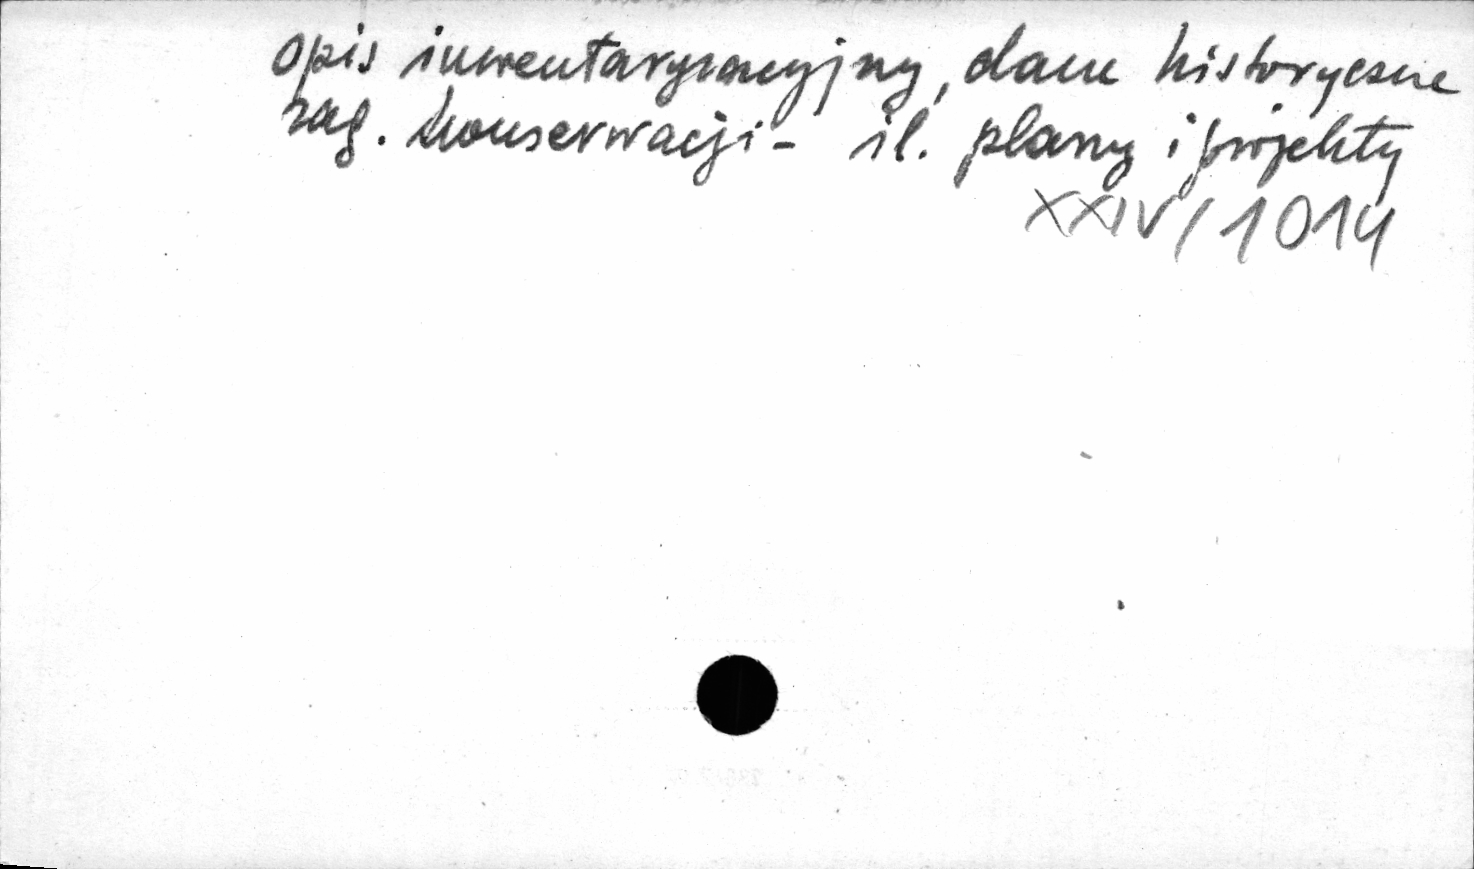 opis inwentaryzacyjny, dane historyczne
zag. konserwacji - il. plany i projekty
XXIV/1014